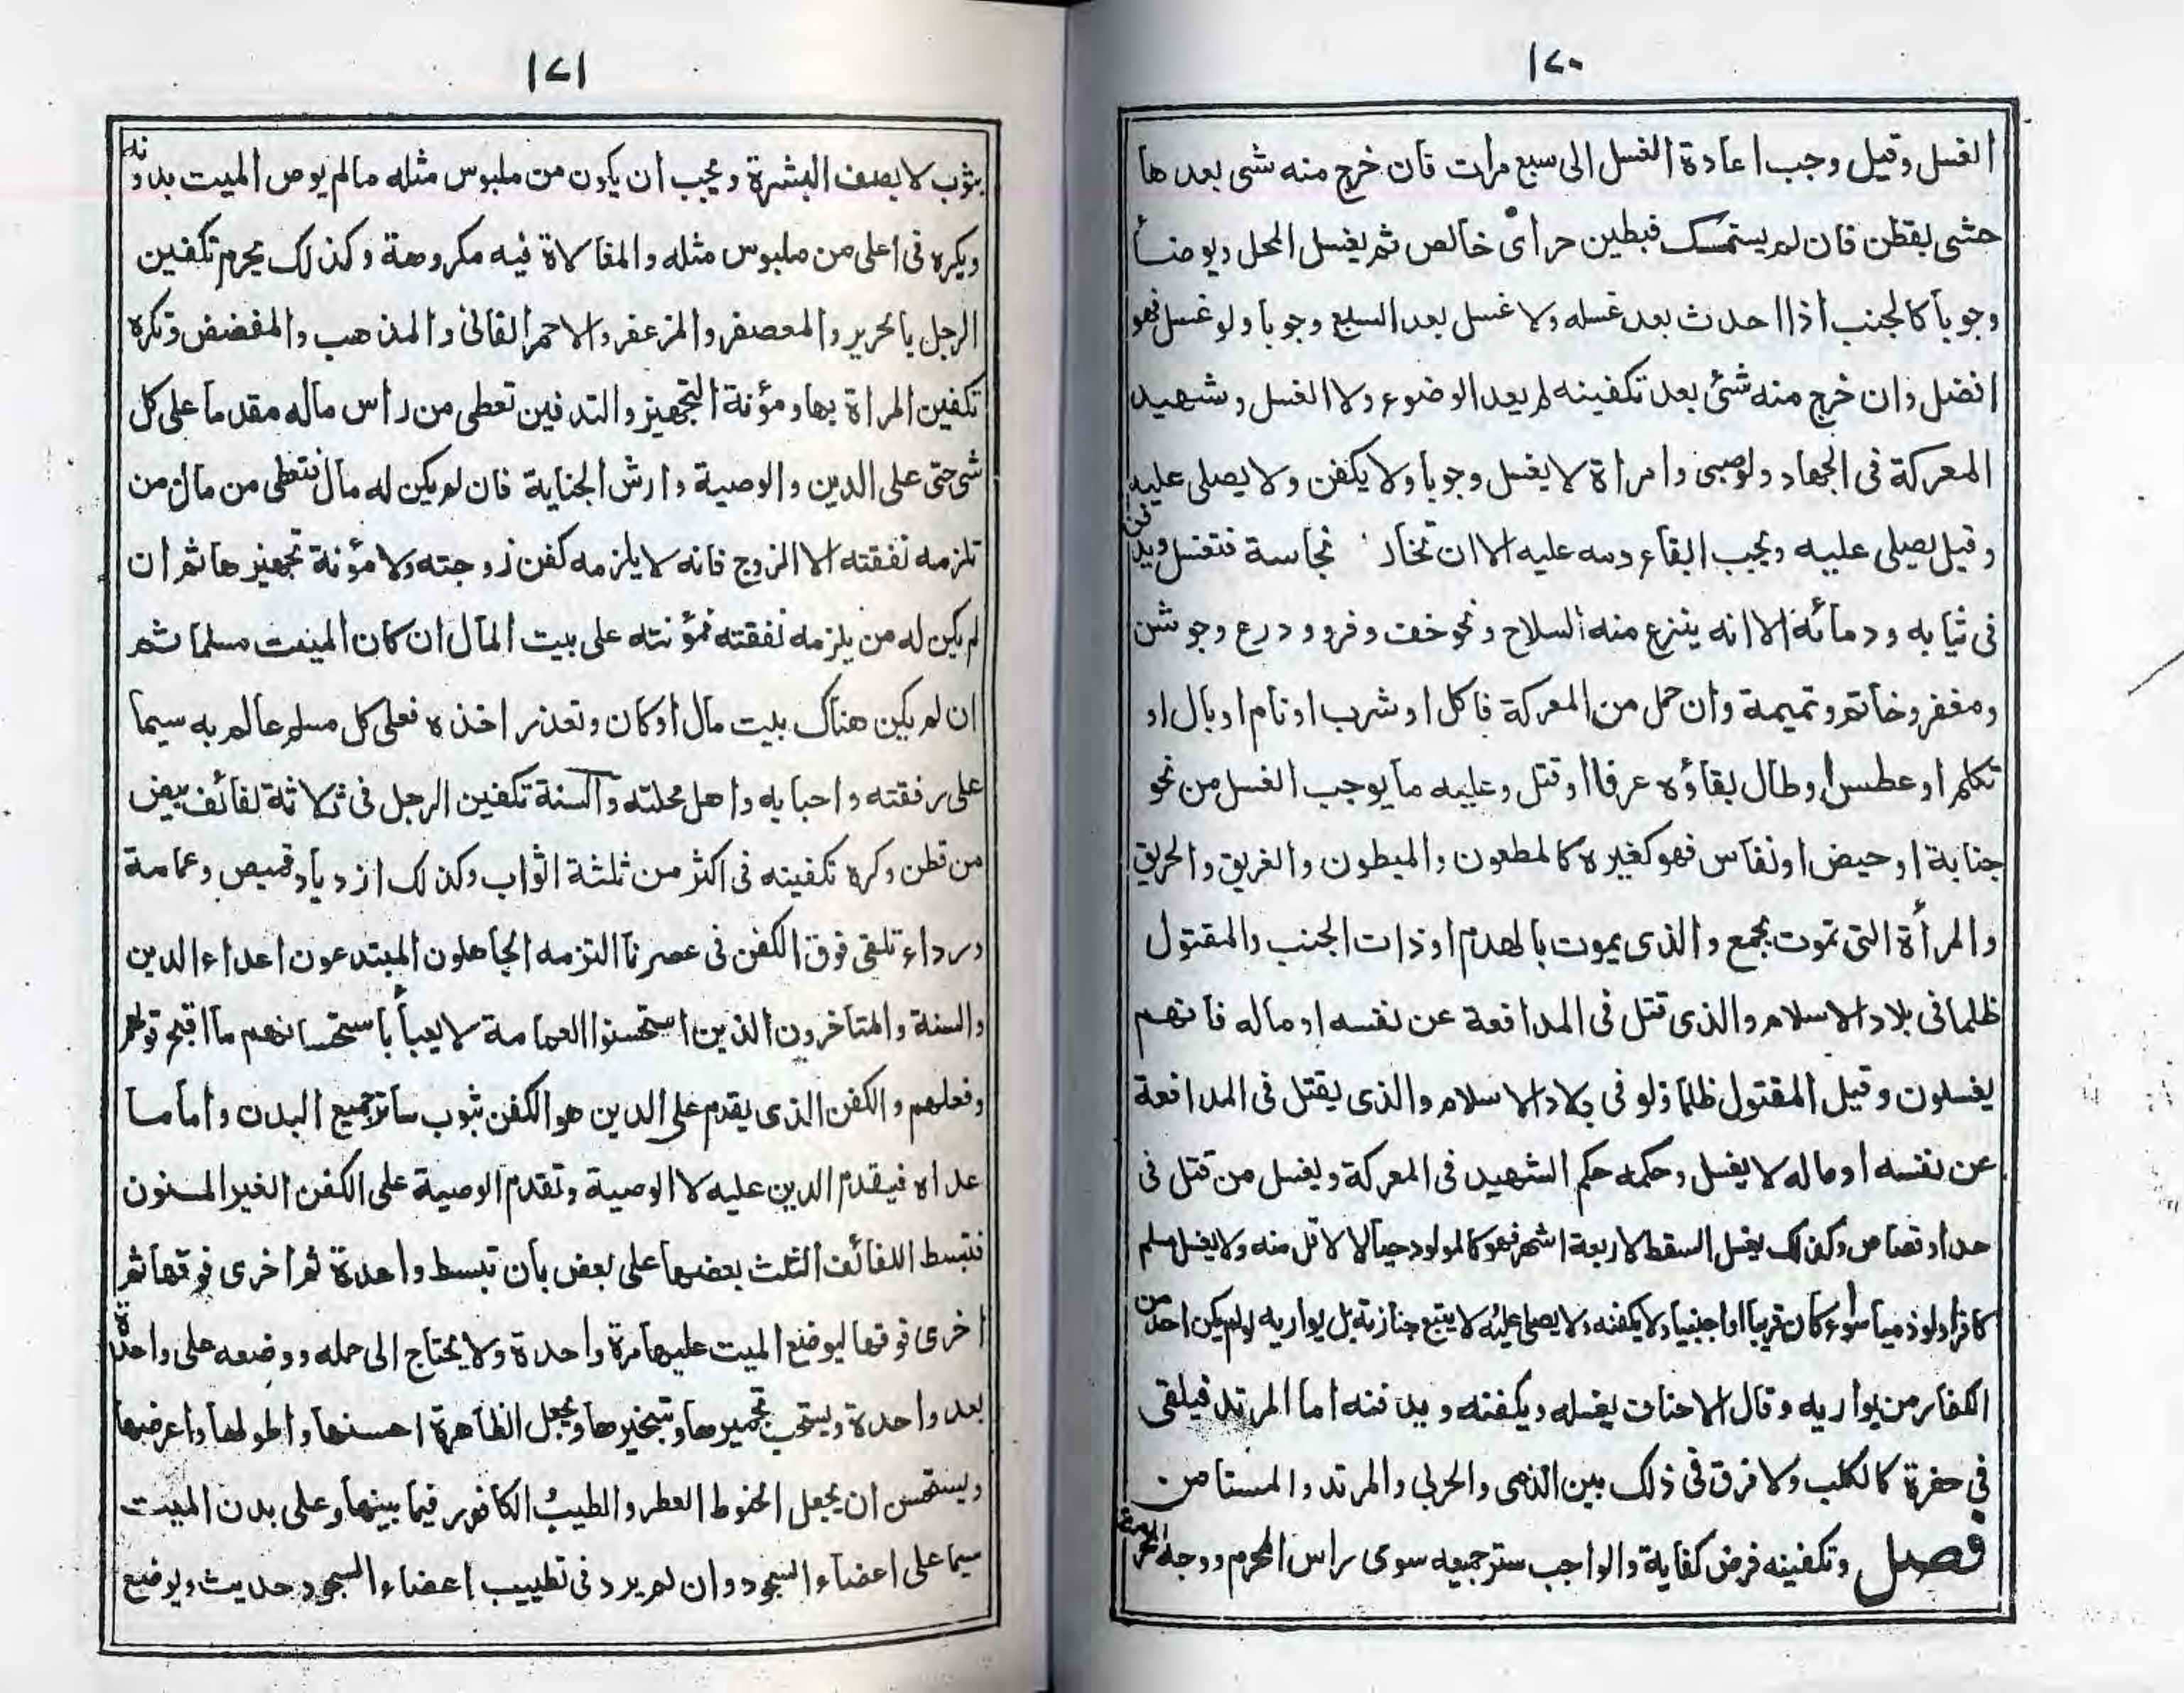 ١٢٠
الغسل وقيل وجب اعادة الغسل الى سبع مرات فان خرج منه شى بعدها
حشى بقطن فان لم يستمسك فبطين حر اى خالص ثم يغسل المحل ويوضأ
وجوبا كالجنب اذا احدث بعد غسله ولا غسل بعد السبع وجوبا ولو غسل فهو
افضل وان خرج منه شئ بعد تكفينه لم يعد الوضوء ولا الغسل وشهيد
المعركة فى الجهاد ولو صبى وامراة لا يغسل وجوبا ولا يكفن ولا يصلى عليه
وقيل يصلى عليه ويجب ابقاء دمه عليه الا ان نجاسة فتغسل ويدفن
فى ثيابه ودمائه الا انه ينزع منه السلاح ونحو خف وفرو ودرع وجوشن
ومغفر وخاتم وتميمة وان حمل من المعركة فاكل او شرب او نام او بال او
تكلم او عطس او طال بقاؤه عرفا او قتل وعليه ما يوجب الغسل من نحو
جنابة او حيض او نفاس فهو كغيره كالمطعون والمبطون والغريق والحريق
والمرأة التى تموت بجمع والذى يموت بالهدم او ذات الجنب والمقتول
ظلما فى بلاد الاسلام والذى قتل فى المدافعة عن نفسه او ماله فانهم
يغسلون وقيل المقتول ظلما ولو فى بلاد الاسلام والذى يقتل فى المدافعة
عن نفسه او ماله لا يغسل وحكمه حكم الشهيد فى المعركة ويغسل من قتل فى
حد او قصاص وكذلك يغسل السقط لاربعة اشهر فهو كالمولود حيا لا لاقل منه ولا يغسل مسلم
كافرا ولو ذميا سواء كان قريبا او اجنبيا ولا يكفنه ولا يصلى عليه لا يتبع جنازته بل يواريه لو لم يكن احد من
الكفار من يواريه وقال الاحناف يغسله ويكفنه ويدفنه اما المرتد فيلقى
فى حفرة كالكلب ولا فرق فى ذلك بين الذمى والحربى والمرتد والمستامن
فصل وتكفينه فرض كفاية والواجب ستر جميعه سوى راس المحرم ووجه المحرمة
١٢١
بثوب لا يصف البشرة ويجب ان يكون من ملبوس مثله مالم يوص الميت بدونه
ويكره فى اعلى من ملبوس مثله والمغالاة فيه مكروهة وكذلك يحرم تكفين
الرجل بالحرير والمعصفر والمزعفر والاحمر القانى والمذهب والمفضض وتكره
تكفين المراة بها ومؤنة التجهيز والتدفين تعطى من راس ماله مقدما على كل
شى حتى على الدين والوصية وارش الجناية فان لم يكن له مال فتعطى من مال من
تلزمه نفقته الا الزوج فانه لا يلزمه كفن زوجته ولا مؤنة تجهيزها ثم ان
لم يكن له من يلزمه نفقته فمؤنته على بيت المال ان كان الميت مسلما ثم
ان لم يكن هناك بيت مال او كان وتعذر اخذه فعلى كل مسلم عالم به سيما
على رفقته واحبابه واهل محلته والسنة تكفين الرجل فى ثلاثة لفائف بيض
من قطن وكره تكفينه فى اكثر من ثلثة اثواب وكذلك ازدياد قميص وعمامة
ورداء تلقى فوق الكفن فى عصرنا التزمه الجاهلون المبتدعون اعداء الدين
والسنة والمتاخرون الذين استحسنوا العمامة لا يعبأ باستحسانهم ما اقبح قولهم
وفعلهم والكفن الذى يقدم على الدين هو الكفن بثوب ساتر جميع البدن واما ما
عداه فيقدم الدين عليه لا الوصية وتقدم الوصية على الكفن الغير المسنون
فتبسط اللفائف الثلث بعضها على بعض بان تبسط واحدة ثم اخرى فوقها ثم
اخرى فوقها ليوضع الميت عليها مرة واحدة ولا يحتاج الى حمله ووضعه على واحدة
بعد واحدة ويستحب تجميرها وتبخيرها ويجعل الظاهرة احسنها واطولها واعرضها
ويستحسن ان يجعل الحنوط العطر والطيب الكافور فيما بينها وعلى بدن الميت
سيما على اعضاء السجود وان لم يرد فى تطييب اعضاء السجود حديث ويوضع